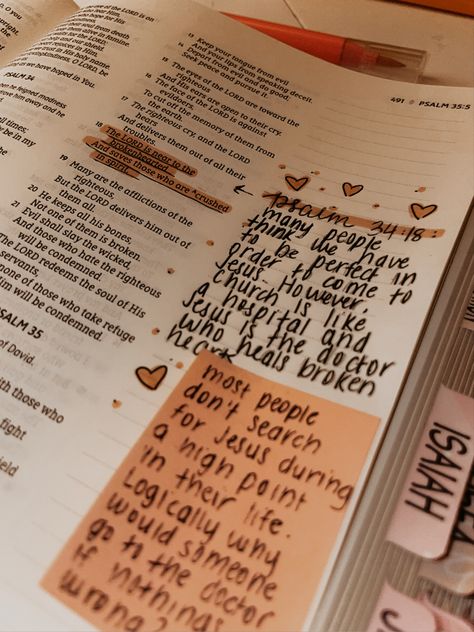 THE LORD IS on
PSALM 34
are have hoped in You.
13 Keep your tongue from evil
And your lips from speaking deceit.
Depart from evil and do good;
Seek peace and pursue it.
15 The eyes of the LORD are toward the
righteous
And His ears are open to their cry.
16 The face of the LORD is against
evildoers,
To cut off the memory of them from
the earth.
17 The righteous cry, and the LORD
hears
And delivers them out of all their
troubles.
18 The LORD is near to the
brokenhearted
And saves those who are crushed
in spirit.
19 Many are the afflictions of the
righteous,
But the LORD delivers him out of
them all.
20 He keeps all his bones,
Not one of them is broken.
21 Evil shall slay the wicked,
And those who hate the righteous
will be condemned.
The LORD redeems the soul of His
servants,
none of those who take refuge
Him will be condemned.
PSALM 35
of David.
with those who
fight
491 PSALM 35:3
psalm 34:18:
many people
think we have
to be perfect in
order to come to
Jesus. However,
church is like
a hospital and
Jesus is the doctor
who heals broken
hearts
most people
don't search
for Jesus during
a high point
in their life.
Logically why
would someone
go to the doctor
if nothings
wrong?
ISAIAH